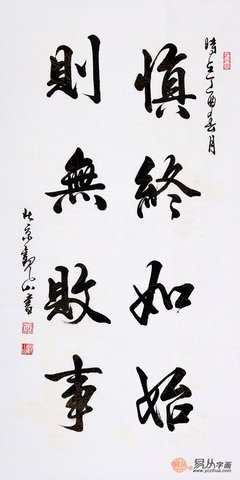 時在丁酉春月
慎終如始
則無敗事
北京觀山書
易从字画
www.yczihua.com